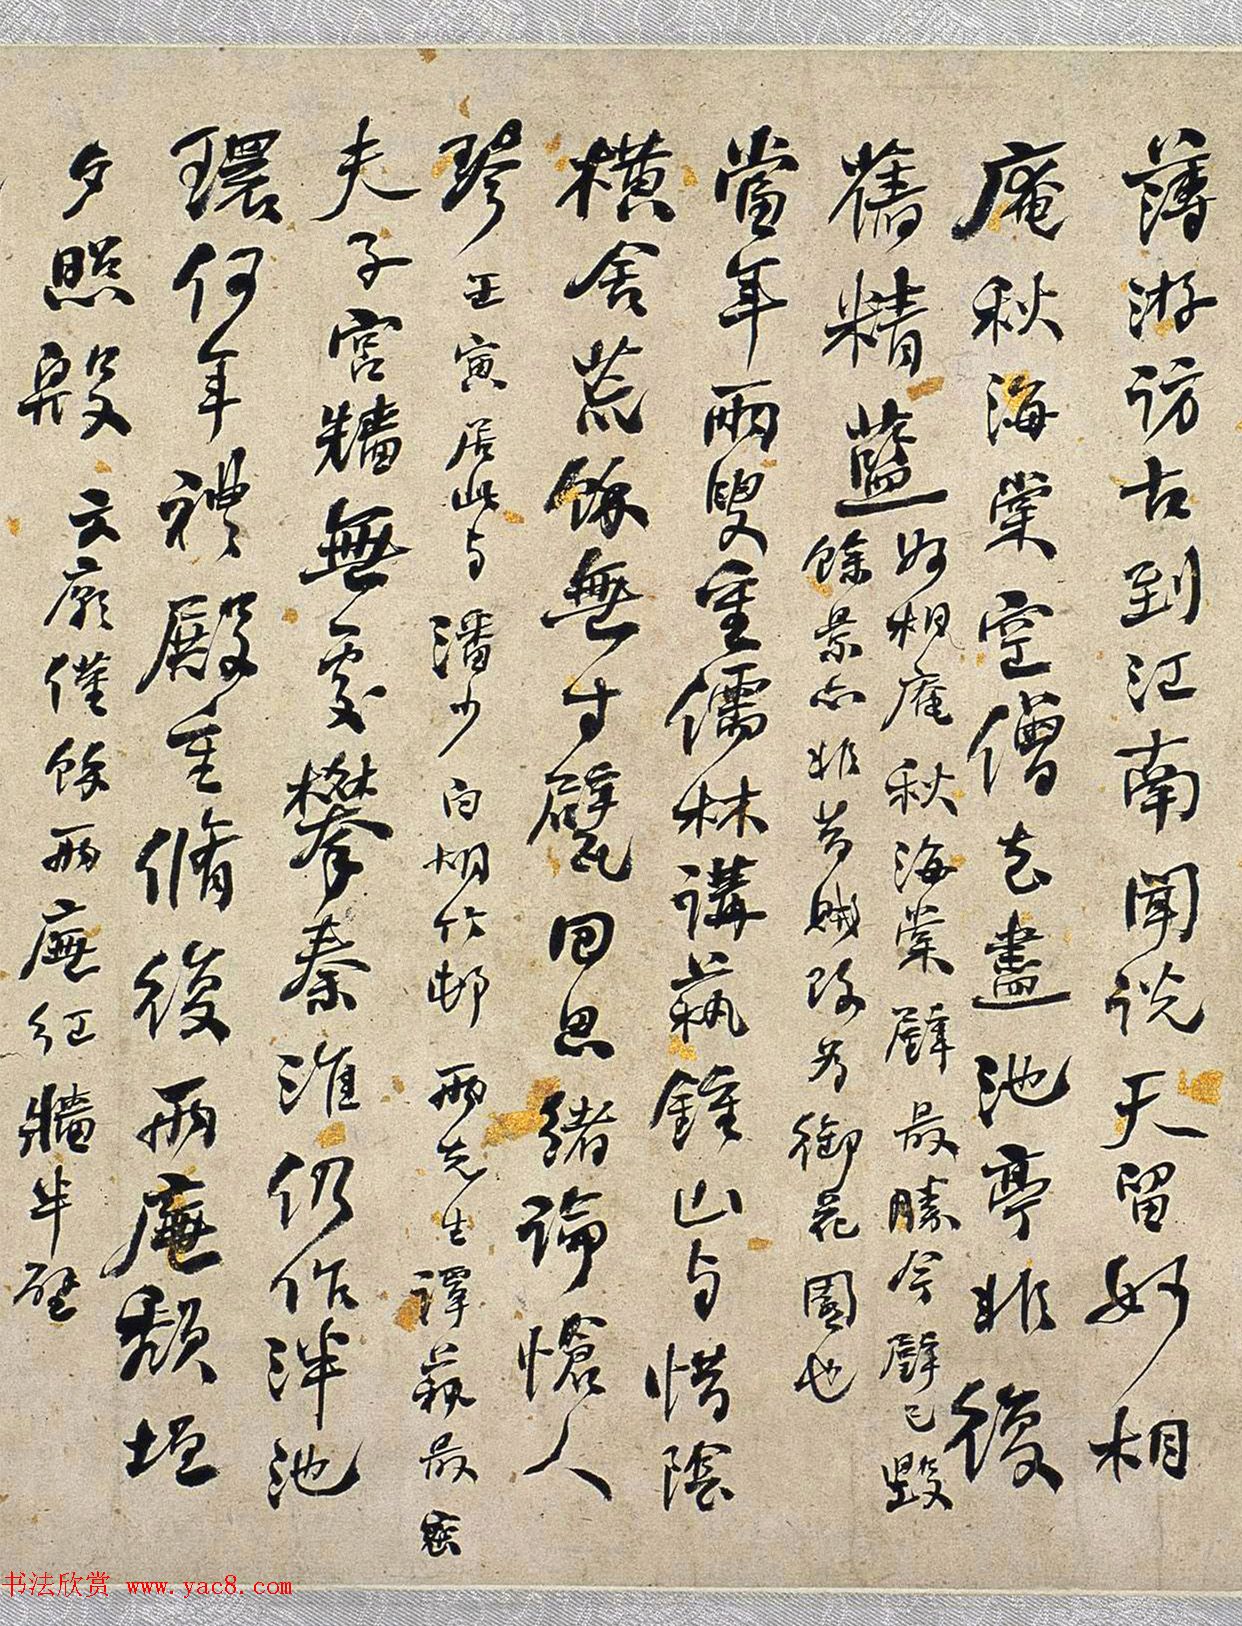 薄游访古到江南聞说天留妙相
庵秋海棠空僧去盡池亭非復
舊精藍妙相庵秋海棠牆最勝今牆已毀
餘景亦非昔賊改为御花園也
當年兩叟重儒林講蓺鍾山与惜陰
橫舍荒餘無寸甓回思緒論愴人
琴壬寅居此与潘少白胡竹邨兩先生譚蓺最密
夫子宮牆無處攀秦淮仍作泮池
環何年禮殿重脩復兩廡頹垣
夕照殷云廟僅餘兩廡紅牆半壁
书法欣赏 www.yac8.com